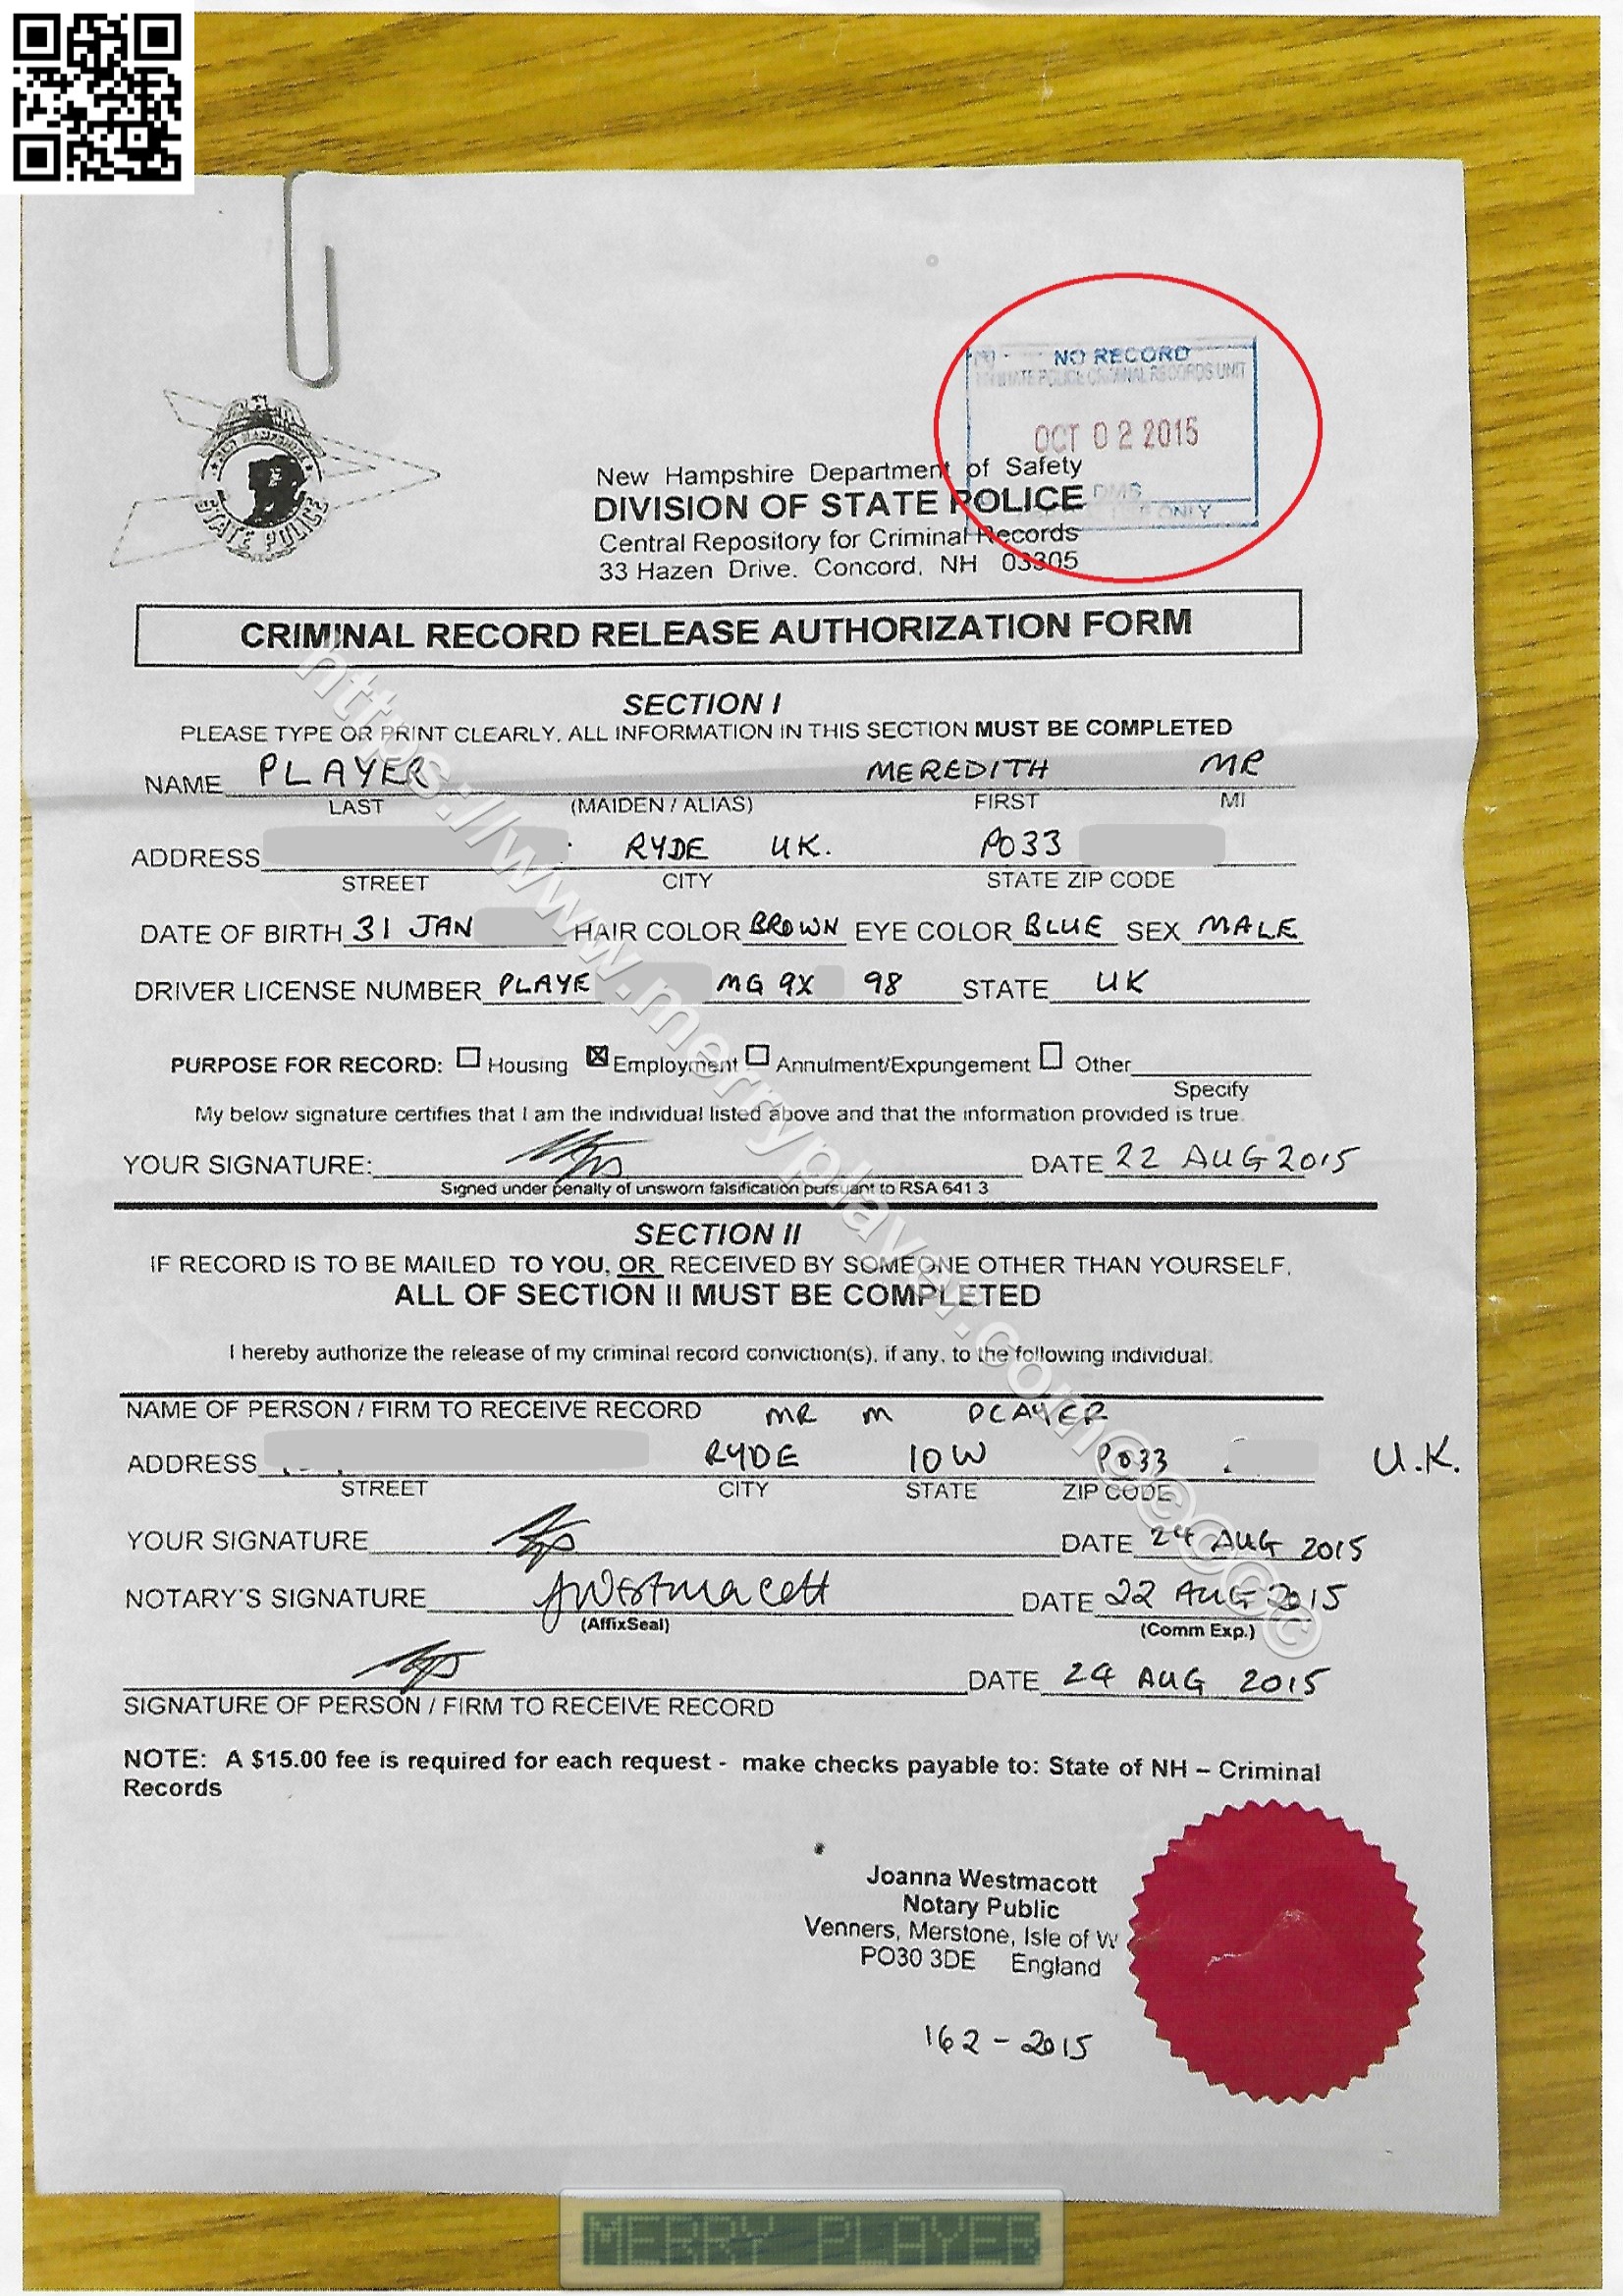 NO RECORD
STATE POLICE CRIMINAL RECORDS UNIT
OCT 02 2015
DMS
USE ONLY
NEW HAMPSHIRE
STATE POLICE
New Hampshire Department of Safety
DIVISION OF STATE POLICE
Central Repository for Criminal Records
33 Hazen Drive. Concord, NH 03305
CRIMINAL RECORD RELEASE AUTHORIZATION FORM
SECTION I
PLEASE TYPE OR PRINT CLEARLY, ALL INFORMATION IN THIS SECTION MUST BE COMPLETED
NAME PLAYER MEREDITH MR
LAST (MAIDEN / ALIAS) FIRST MI
ADDRESS RYDE UK. PO33
STREET CITY STATE ZIP CODE
DATE OF BIRTH 31 JAN HAIR COLOR BROWN EYE COLOR BLUE SEX MALE
DRIVER LICENSE NUMBER PLAYE MG 9X 98 STATE UK
PURPOSE FOR RECORD: Housing Employment Annulment/Expungement Other
Specify
My below signature certifies that I am the individual listed above and that the information provided is true.
YOUR SIGNATURE: DATE 22 AUG 2015
Signed under penalty of unsworn falsification pursuant to RSA 641 3
SECTION II
IF RECORD IS TO BE MAILED TO YOU, OR RECEIVED BY SOMEONE OTHER THAN YOURSELF,
ALL OF SECTION II MUST BE COMPLETED
I hereby authorize the release of my criminal record conviction(s), if any, to the following individual.
NAME OF PERSON / FIRM TO RECEIVE RECORD MR M PLAYER
ADDRESS RYDE IOW PO33 U.K.
STREET CITY STATE ZIP CODE
YOUR SIGNATURE DATE 24 AUG 2015
NOTARY'S SIGNATURE JWestmacott DATE 22 AUG 2015
(AffixSeal) (Comm Exp.)
DATE 24 AUG 2015
SIGNATURE OF PERSON / FIRM TO RECEIVE RECORD
NOTE: A $15.00 fee is required for each request - make checks payable to: State of NH – Criminal
Records
Joanna Westmacott
Notary Public
Venners, Merstone, Isle of W
PO30 3DE England
162 - 2015
https://www.merryplayer.com©©©©©
MERRY PLAYER